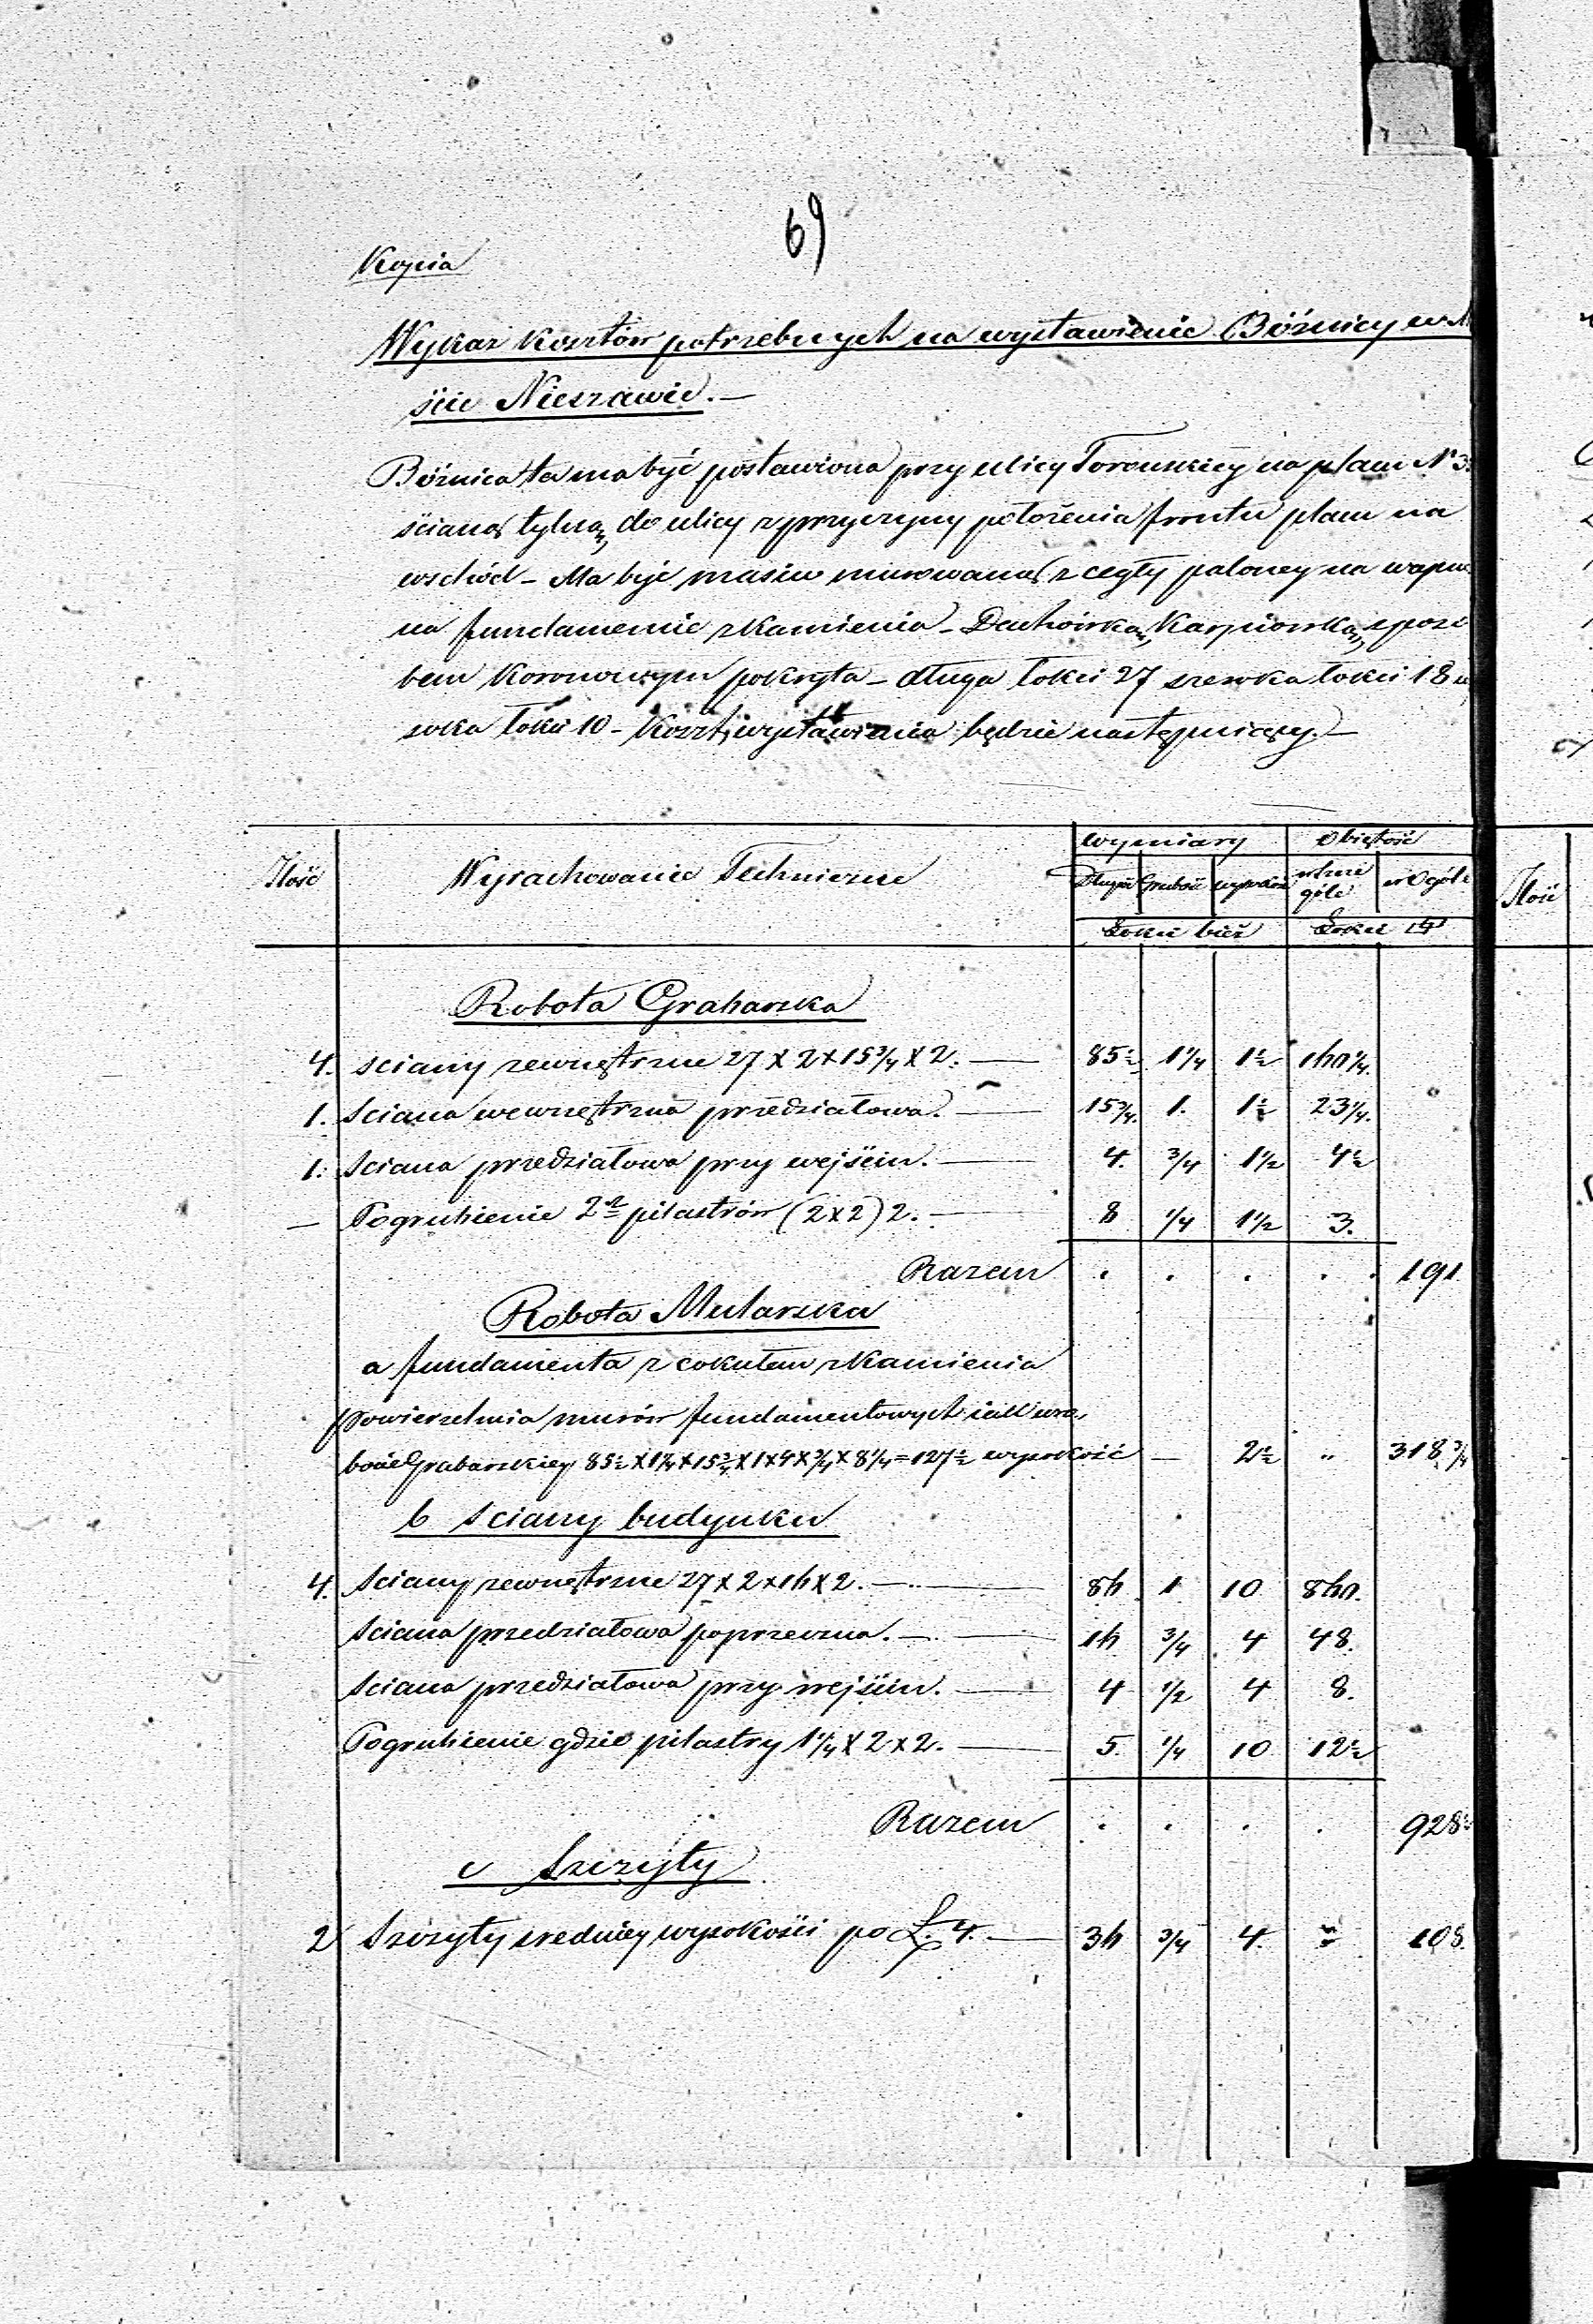 69
Kopia
Wykaz kosztów potrzebnych na wystawienie Bóżnicy w M
ście Nieszawie. —
Bóżnica ta ma być postawiona przy ulicy Torouskiey na placu N 3
ścianą tylną do ulicy z przyczyny położenia frontu placu na
wschód - Ma być masiw murowana z cegły paloney na wapn
na fundamencie z kamienia - Dachówką Karpiowką, sposo
bem koronowym pokryta - długa łokci 27 szeroka łokci 18 w
soka łokci 10 - Koszt wystawienia będzie następuiący. —
Ilość Wyrachowanie Techniczne wymiary Obiętość
Długość Grubość wysokość w szcze góle w Ogóle
Łokcie bież Łokcie Ilość
Robota Grabarska
4. sciany zewnętrzne 27 x 2 x 15 3/4 x 2. — 85 1/2 1 1/4 1 1/2 160 1/4.
1. sciana wewnętrzna przedziałowa. — 15 3/4. 1. 1 1/2 23 1/4.
1. sciana przedziałowa przy wejściu. — 4. 3/4 1 1/2 4 1/2
— Pogrubienie 2 pilastrów (2 x 2) 2. — 8 1/4 1 1/2 3.
Razem . . . . . 191
Robota Mularska
a fundamenta z cokułem z kamienia
Powierzchnia murów fundamentowych iak w ro,
bocie Grabarskiey 85 1/2 x 1 1/4 x 15 3/4 x 1 x 4 x 3/4 x 8 1/4 = 127 1/2 wysokość — 2 1/2 " 318 3/4
b sciany budynku
4. sciany zewnętrzne 27 x 2 x 16 x 2. — 86 1 10 860.
sciana przedziałowa poprzeczna. — 16 3/4 4 48.
sciana przedziałowa przy wejściu. — 4 1/2 4 8.
Pogrubienie gdzie pilastry 1 1/4 x 2 x 2. — 5. 1/4 10 12 1/2
Razem . . . . 928 1/2
c Szczyty
2 Szczyty sredniey wysokości po Ł. 4. — 36 3/4 4. " 108.